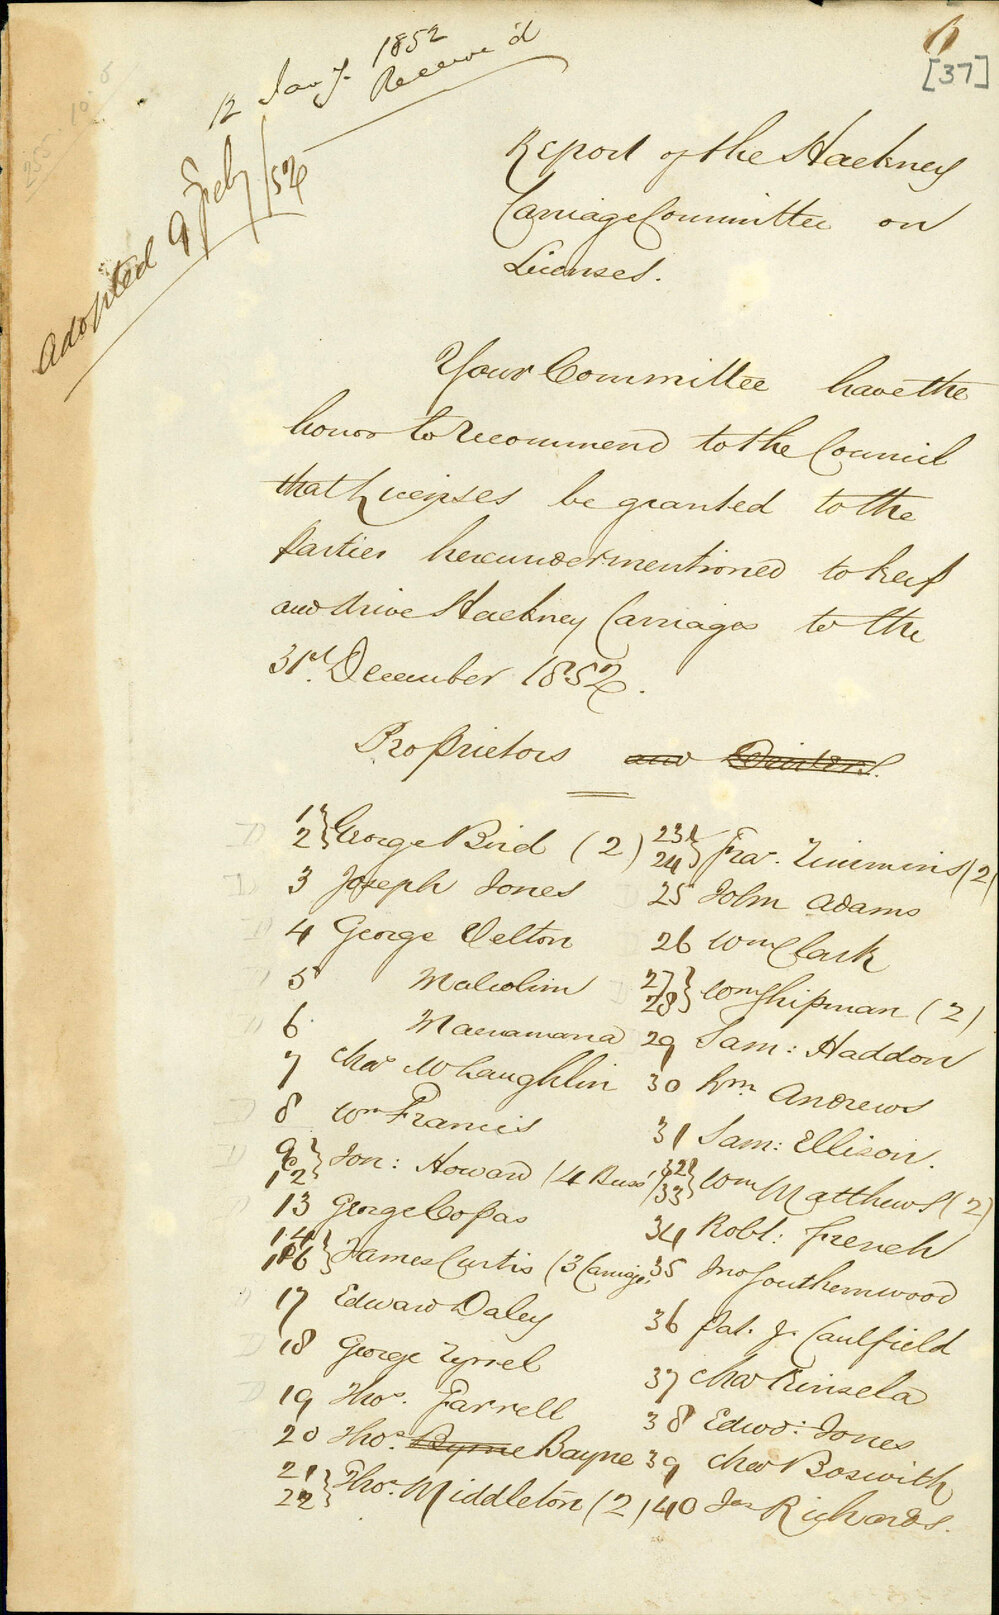 [37]
12 Jany. 1852
Receive'd
Adopted 9 Feby /52
Report of the Hackney
Carriage Committee on
Licenses.
Your Committee have the
honor to recommend to the Council
that Licenses be granted to the
Parties hereundermentioned to keep
and drive Hackney Carriages to the
31st December 1852.
Proprietors and Drivers.
1
2 } George Bird (2)
3 Joseph Jones
4 George Velton
5 Malcolm
6 Macnamara
7 Chas McLaughlin
8 Wm Francis
9 &
12 } Jon: Howard (4 Buss)
13 George Copas
14
16 } James Curtis (3 Carriage
17 Edward Daley
18 George Tyrrel
19 Thos. Farrell
20 Thos. Byrne Bayne
21
22 } Thos. Middleton (2)
23
24 } Fras. Timmins (2)
25 John Adams
26 Wm Clark
27
28 } Wm Shipman (2)
29 Sam: Haddon
30 Wm. Andrews
31 Sam: Ellison.
32
33 } Wm Matthews (2)
34 Robt: French
35 Jno Southernwood
36 Pat. J. Caulfield
37 Chas Kinsela
38 Edwd: Jones
39 Chas Boswith
40 Jas Richards.